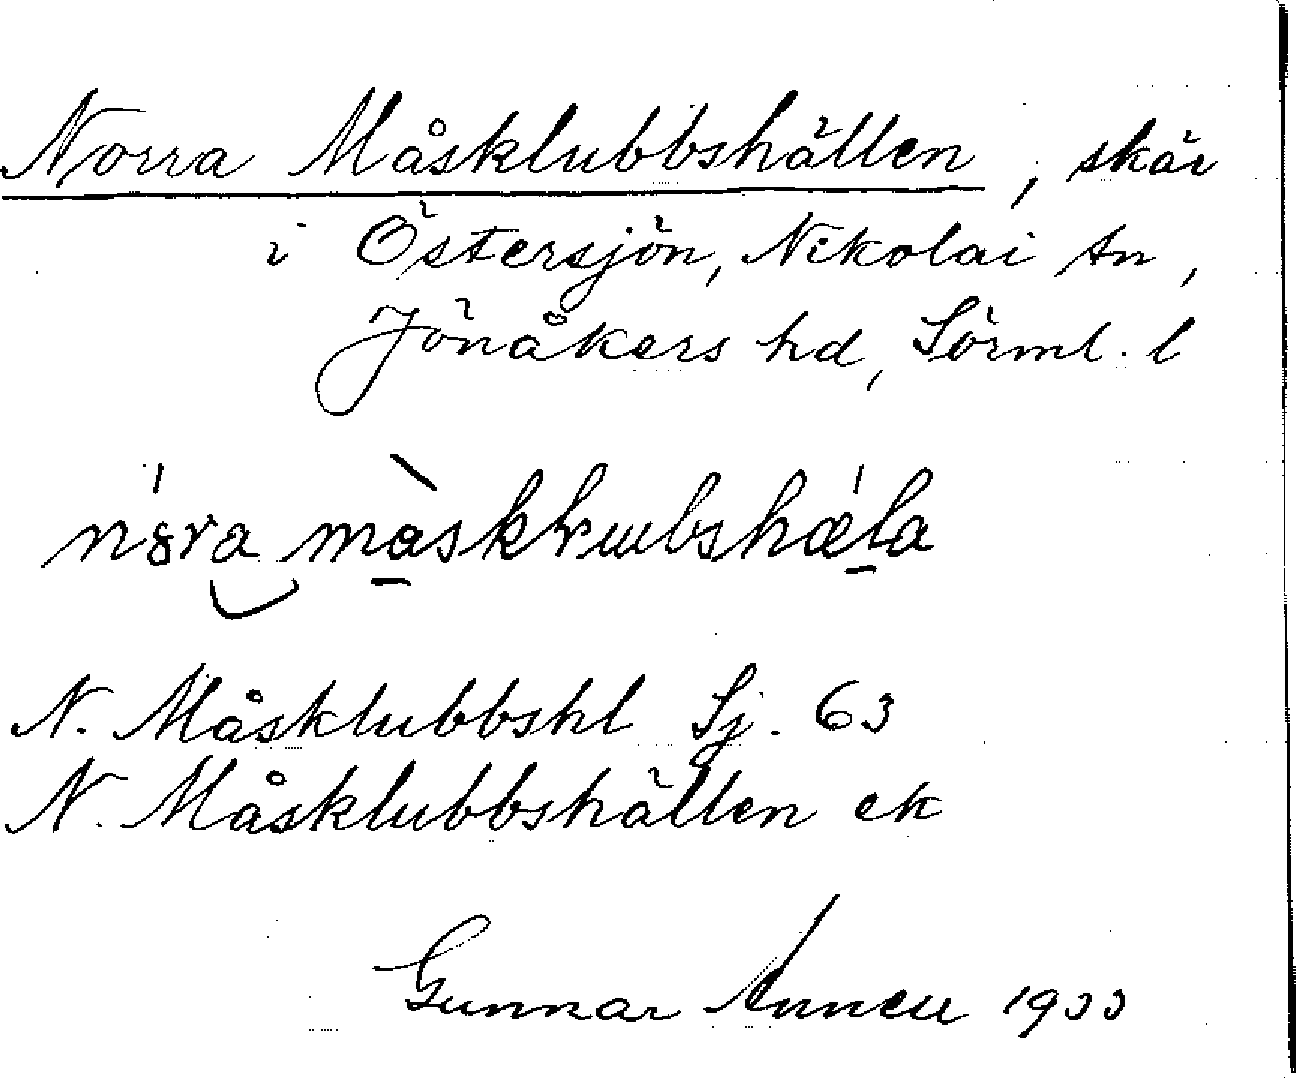 Norra Måsklubbshällen, skär
i Östersjön, Nikolai sn,
Jönåkers hd, Sörml. l
N. Måsklubbshl Sj. 63
N. Måsklubbshällen ek
Gunnar Annell 1933